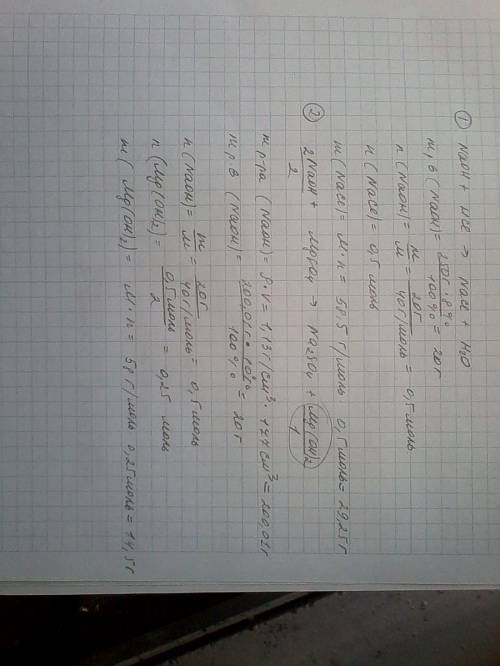 ① NaOH + HCl → NaCl + H₂O
m р.в (NaOH) = 250г · 8% / 100% = 20г
n (NaOH) = m / M = 20г / 40г/моль = 0,5моль
n (NaCl) = 0,5 моль
m (NaCl) = M · n = 58.5 г/моль 0,5моль = 29,25г
② 2NaOH / 2 + MgSO₄ → Na₂SO₄ + Mg(OH)₂ / 1
m р-ра (NaOH) = ρ · V = 1,13г/см³ · 177см³ = 200,01г
m р.в (NaOH) = 200,01г · 10% / 100% = 20г
n (NaOH) = m / M = 20г / 40г/моль = 0,5моль
n (Mg(OH)₂) = 0,5моль / 2 = 0,25 моль
m ( Mg(OH)₂) = M · n = 58 г/моль 0,25моль = 14,5г